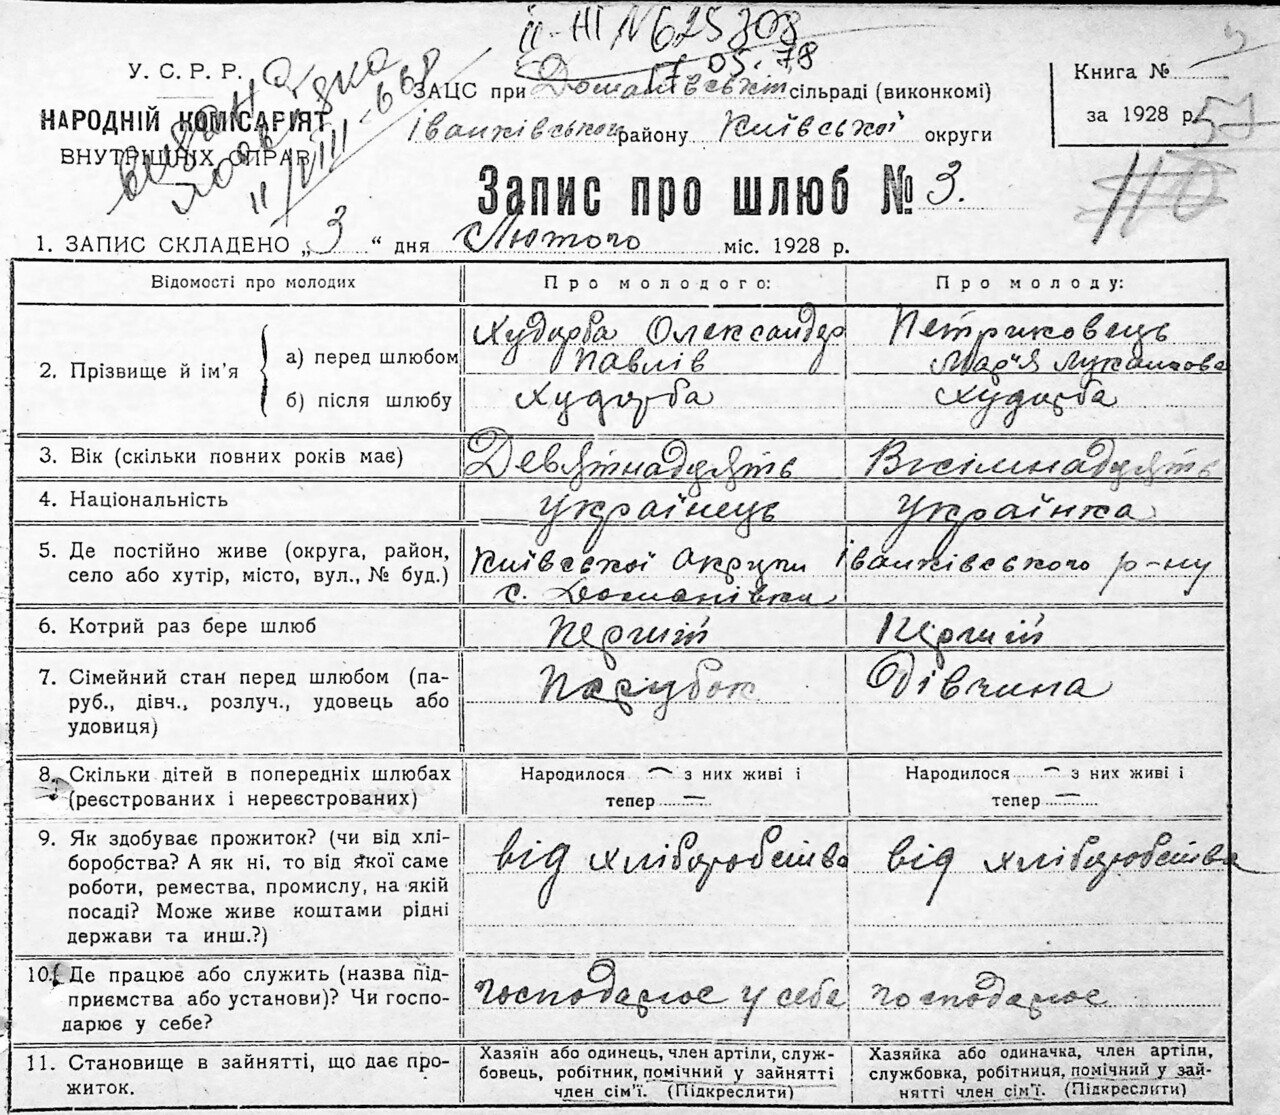 ІІ-НІ № 625308
17.05.78
У. С. Р. Р.
НАРОДНІЙ КОМІСАРІЯТ
ВНУТРІШНІХ СПРАВ
видана
ЗАЦС при Доманівській сільраді (виконкомі)
Іванківського району Київської округи
Книга №
за 1928 р.
57
110
Запис про шлюб № 3.
1. ЗАПИС СКЛАДЕНО „3“ дня Лютого міс. 1928 р.
Відомості про молодих
Про молодого:
Про молоду:
2. Прізвище й ім’я
а) перед шлюбом
Худорба Олександер
Павлів
Петриковець
Мар’я Лукашова
б) після шлюбу
Худорба
Худорба
3. Вік (скільки повних років має)
Девятнадцять
Вісімнадцять
4. Національність
Українець
Українка
5. Де постійно живе (округа, район,
село або хутір, місто, вул., № буд.)
Київської Округи Іванківського р-ну
с. Доманівка
6. Котрий раз бере шлюб
Перший
Перший
7. Сімейний стан перед шлюбом (па-
руб., дівч., розлуч., удовець або
удовиця)
Парубок
Дівчина
8. Скільки дітей в попередніх шлюбах
(реєстрованих і нереєстрованих)
Народилося — з них живі і
тепер —
Народилося — з них живі і
тепер —
9. Як здобуває прожиток? (чи від хлі-
боробства? А як ні, то від якої саме
роботи, ремества, промислу, на якій
посаді? Може живе коштами рідні
держави та инш.?)
від хліборобства
від хліборобства
10. Де працює або служить (назва під-
приємства або установи)? Чи госпо-
дарює у себе?
господарює у себе
господарює
11. Становище в зайнятті, що дає про-
житок.
Хазяїн або одинець, член артіли, служ-
бовець, робітник, помічний у зайнятті
член сім’ї. (Підкреслити)
Хазяйка або одиначка, член артіли,
службовка, робітниця, помічний у зай-
нятті член сім’ї. (Підкреслити)